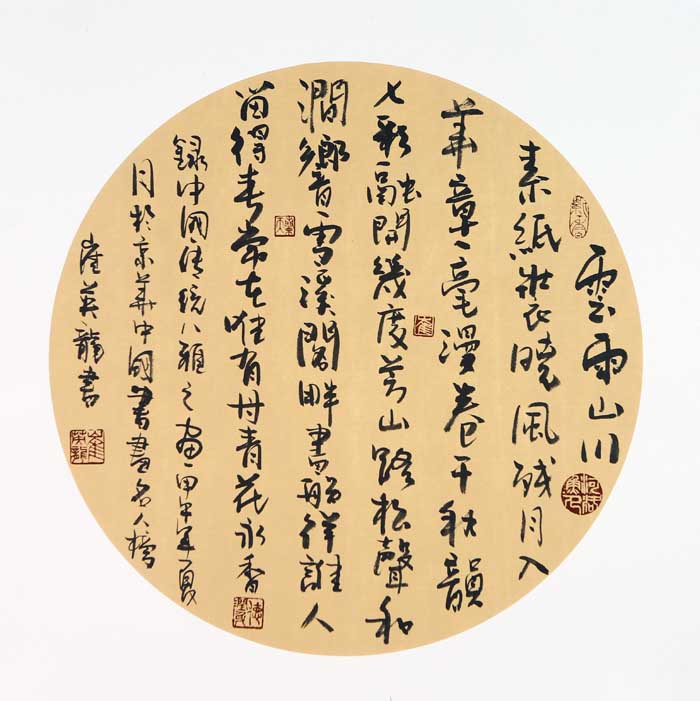 雲雨山川
素紙裝曉風殘月入
華章一毫漫卷千秋韻
七彩融開幾度芳山路松聲和
澗響雪溪閣畔畫舫徉誰人
留得春常在唯有丹青花永香
録中國傳統八雅之畫甲午年夏
月於京華中國書畫名人
崔英龍書